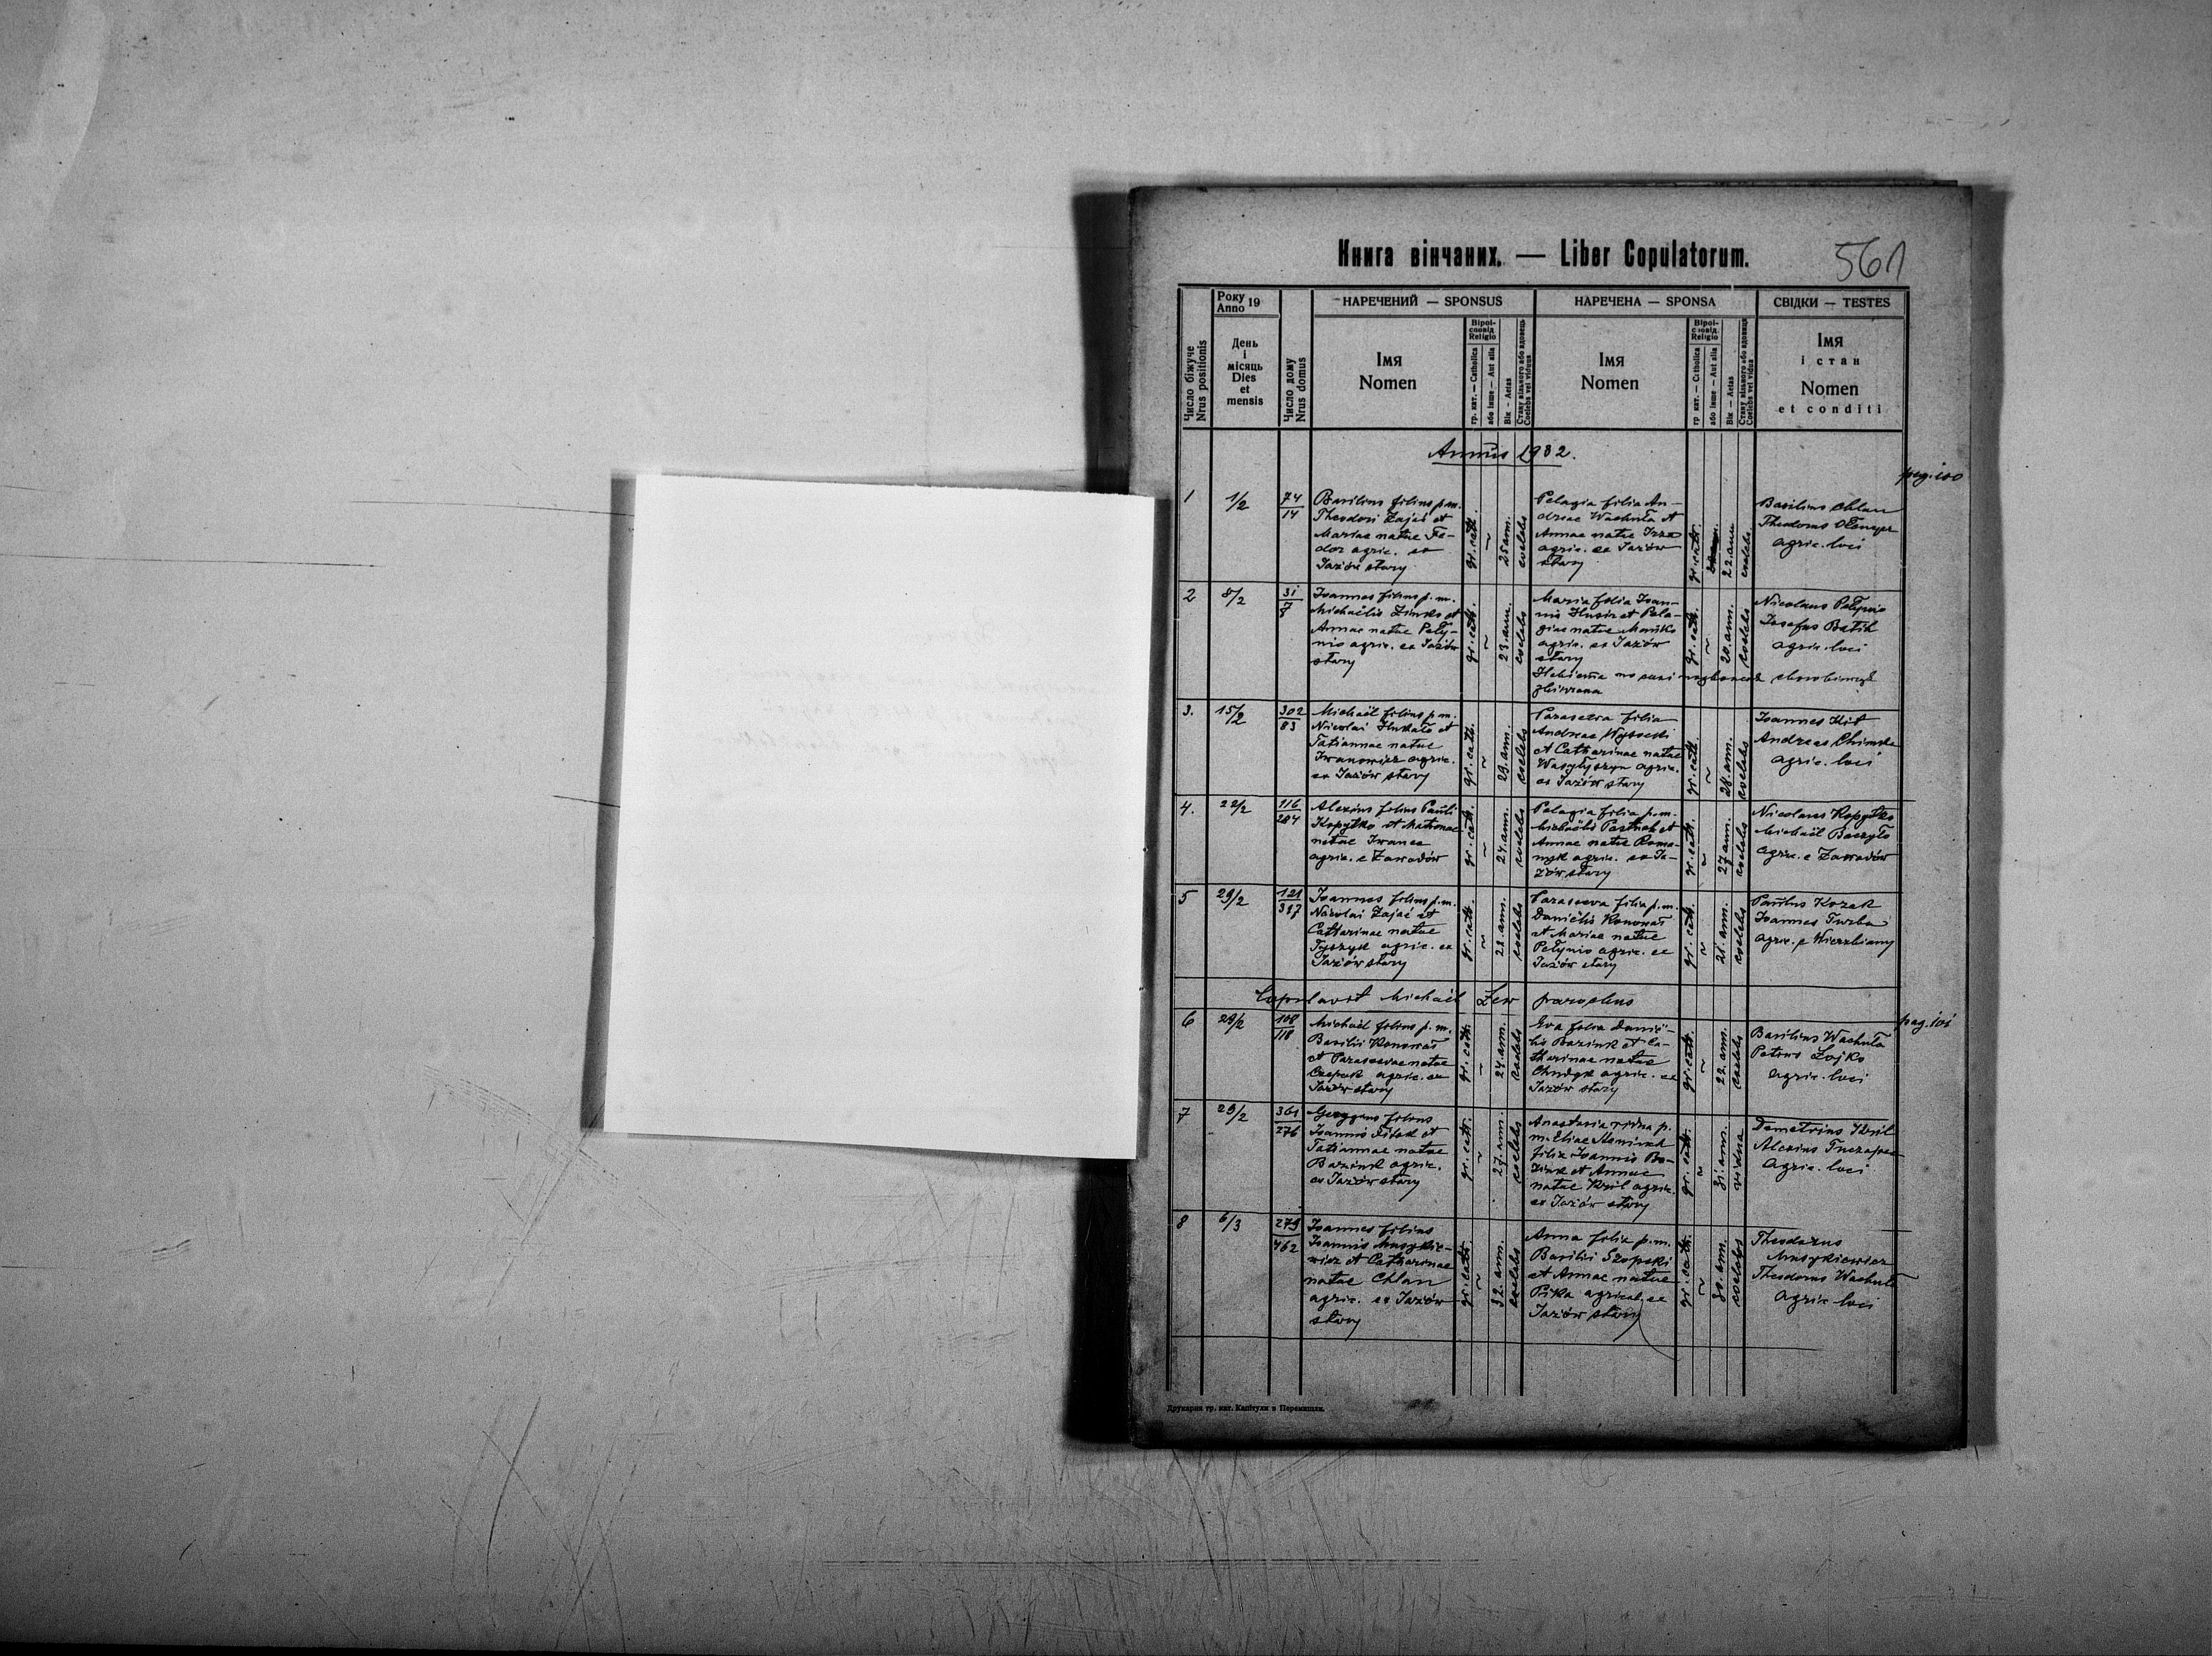 Книга вінчаних. — Liber Copulatorum.
561
Число біжуче
Nrus positionis
Року
Anno 19
День
і
місяць
Dies
et
mensis
Число дому
Nrus domus
НАРЕЧЕНИЙ — SPONSUS
Імя
Nomen
Віроі-
сповід.
Religio
гр. кат. — Catholica
або інше — Aut alia
Вік — Aetas
Стану вільного або вдовець
Coelebs vel viduus
НАРЕЧЕНА — SPONSA
Імя
Nomen
Віроі-
сповід.
Religio
гр. кат. — Catholica
або інше — Aut alia
Вік — Aetas
Стану вільного або вдовиця
Coelebs vel vidua
СВІДКИ — TESTES
Імя
і стан
Nomen
et conditi
Annus 1932.
pag. 100
1
1/2
74
14
Basilius filius p.m.
Theodori Zając et
Mariae natae Fe-
dor agric. ex
Jazów stary
gr. cath.
25 ann.
coelebs
Pelagia filia An-
dreae Wachuła et
Annae natae
agric. ex Jazów
stary
gr. cath.
22. ann.
coelebs
Basilius Chlan
Theodorus
agric. loci
2
8/2
31
8
Joannes filius p.m.
Michaëlis Zinko et
Annae natae Peły-
nio agric. ex Jazów
stary
gr. cath.
23. ann.
coelebs
Maria filia Joan-
nis Husir et Pela-
giae natae Mońko
agric. ex Jazów
stary
gr. cath.
20. ann.
coelebs
Nicolaus Pełynio
Josefus Batih
agric. loci
3.
15/2
302
83
Michaël filius p.m.
Nicolai et
Tatiannae natae
Iwanowicz agric.
ex Jazów stary
gr. cath.
29. ann.
coelebs
Parasceva filia
Andreae Wysocki
et Catharinae natae
Wasyłyszyn agric.
ex Jazów stary
gr. cath.
28. ann.
coelebs
Joannes Kit
Andreas
agric. loci
4.
22/2
116
204
Alexius filius Pauli
Kopytko et Matronae
natae Iwanea
agric. e Zawadów
gr. cath.
24. ann.
coelebs
Pelagia filia p.m.
Michaëlis et
Annae natae Roma-
nyk agric. ex Ja-
zów stary
gr. cath.
27 ann.
coelebs
Nicolaus Kopytko
Michaël Baczyło
agric. e Zawadów
5
29/2
121
387
Joannes filius p.m.
Nicolai Zając et
Catharinae natae
Tyszyk agric. ex
Jazów stary
gr. cath.
22. ann.
coelebs
Parasceva filia p.m.
Daniëlis Konowaś
et Mariae natae
Pełynio agric. ex
Jazów stary
gr. cath.
21. ann.
coelebs
Paulus Kozak
Joannes Turba
agric. e Wierzbiany
Copulavit Michaël Lew parochus
6
29/2
108
118
Michaël filius p.m.
Basilii Konowaś
et Parascevae natae
agric. ex
Jazów stary
gr. cath.
24. ann.
coelebs
Eva filia Danië-
lis Bazink et Ca-
tharinae natae
agric. ex
Jazów stary
gr. cath.
22. ann.
coelebs
Basilius Wachuła
Petrus Zajko
agric. loci
pag. 101
7
29/2
361
276
filius
Joannis et
Tatiannae natae
Bazink agric.
ex Jazów stary
gr. cath.
27. ann.
coelebs
Anastasia vidua p.
m. Eliae
filia Joannis Ba-
zink et Annae
natae Kril agric.
ex Jazów stary
gr. cath.
31. ann.
vidua
Demetrius Kril
Alexius
agric. loci
8
6/3
279
462
Joannes filius
Joannis Musykie-
wicz et Catharinae
natae Chlan
agric. ex Jazów
stary
gr. cath.
32. ann.
coelebs
Anna filia p.m.
Basilii Szopski
et Annae natae
Pika agricol. ex
Jazów stary
gr. cath.
30. ann.
coelebs
Theodorus
Musykiewicz
Theodorus Wachuła
agric. loci
Друкарня гр. кат. Капітули в Перемишли.